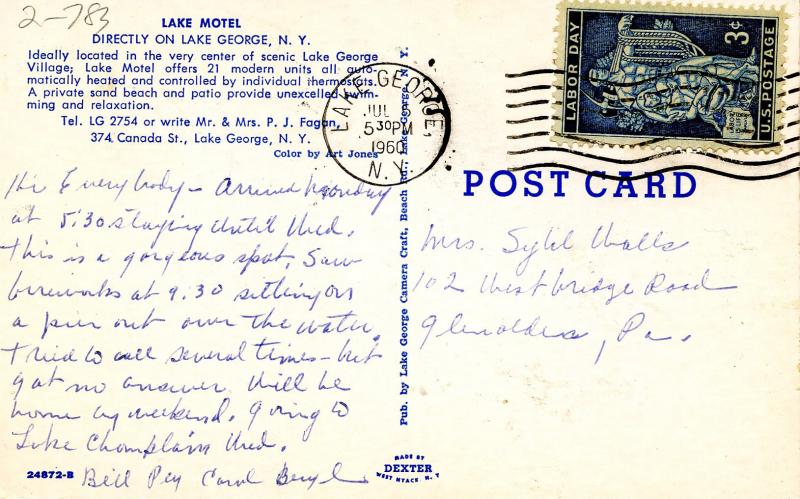 2-783
LAKE MOTEL
DIRECTLY ON LAKE GEORGE, N. Y.
Ideally located in the very center of scenic Lake George
Village; Lake Motel offers 21 modern units all auto-
matically heated and controlled by individual thermostats.
A private sand beach and patio provide unexcelled swim-
ming and relaxation.
Tel. LG 2754 or write Mr. & Mrs. P. J. Fagan,
374 Canada St., Lake George, N. Y.
Color by Art Jones
Hi Everybody - Arrived Monday
at 5:30 staying until Wed.
This is a gorgeous spot. Saw
fireworks at 9:30 sitting on
a pier out over the water.
Tried to call several times - but
got no answer. Will be
home by weekend. Going to
Lake Champlain Wed.
Bill Peg Carol Beryl
24872-B
Pub. by Lake George Camera Craft, Beach Rd., Lake George, N. Y.
MADE BY
DEXTER
WEST NYACK, N. Y.
LAKE GEORGE,
JUL 5
5 30 PM
1960
N. Y.
LABOR DAY
3¢
U.S. POSTAGE
LABOR IS LIFE
POST CARD
Mrs. Sybil Walls
102 Westbridge Road
Glenolden, Pa.